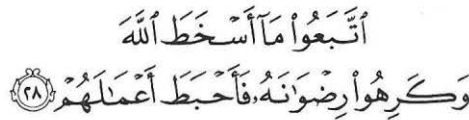 ٱتَّبَعُوا۟ مَآ أَسۡخَطَ ٱللَّهَ
وَكَرِهُوا۟ رِضۡوَٰنَهُۥ فَأَحۡبَطَ أَعۡمَٰلَهُمۡ ٢٨